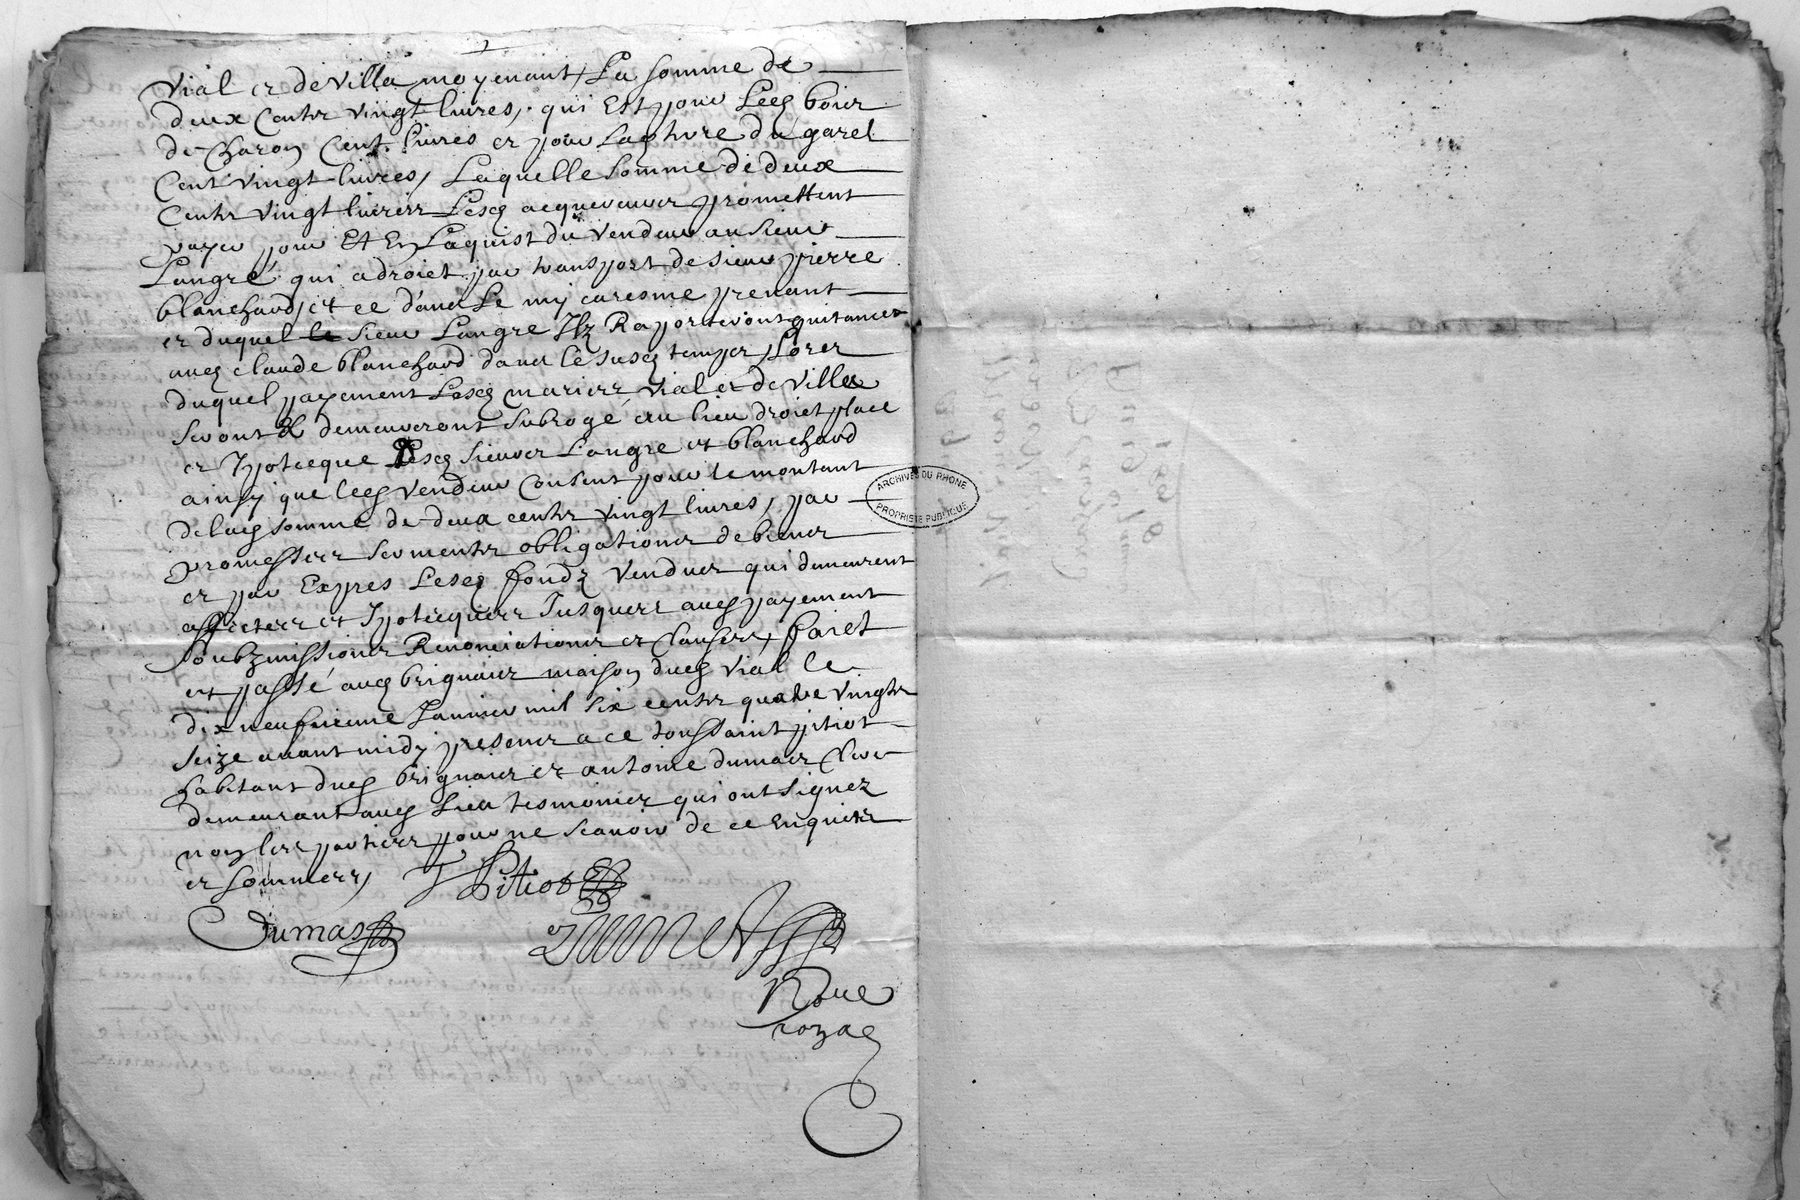 Vial et de Villa moyenant, La somme de
deux Centz Vingt livres, qui Est pour Lesq boier
de Charon Cent livres et pour La du garel
Cent Vingt livres, Laquelle Somme de deux
Centz Vingt livres Lesq acquereurs promettent
payer pour Et En Laquist du Vendeur au Sieur
Langre qui a droict par transport de Sieur pierre
blanchard, et ce dans Le my caresme prenant
et duquel Sieur Langre Ilz Raporteront quitance
aucq claude blanchard dans le susq temps, Lors
duquel payement Lesq mariez Vial et de Villa
seront & demeureront Subrogé au lieu droict place
et Ypoteque Desq Sieurs Langre et blanchard
ainsy que leq Vendeur Consent pour le montant
de laq somme de deux centz vingt livres, par
promesses sermentz obligations de biens
et par Expres Lesq fondz Vendus qui demeurent
affectez et Ypotequez Jusques auq payement
soubzmissions Renonciations et clauses, faict
et passé auq brignais maison duq Vial le
dix neufvieme Janvier mil six centz quatre Vingtz
seize avant midy presens a ce toussaint pitiot
habitant duq brignais et antoine dumas Clerc
demeurant auq Lieu tesmoins qui ont signez
non les parties pour ne scavoir de ce Enquises
et sommees,
T Pitiot
Dumas
Noue
royal
ARCHIVES DU RHONE
PROPRIETE PUBLIQUE